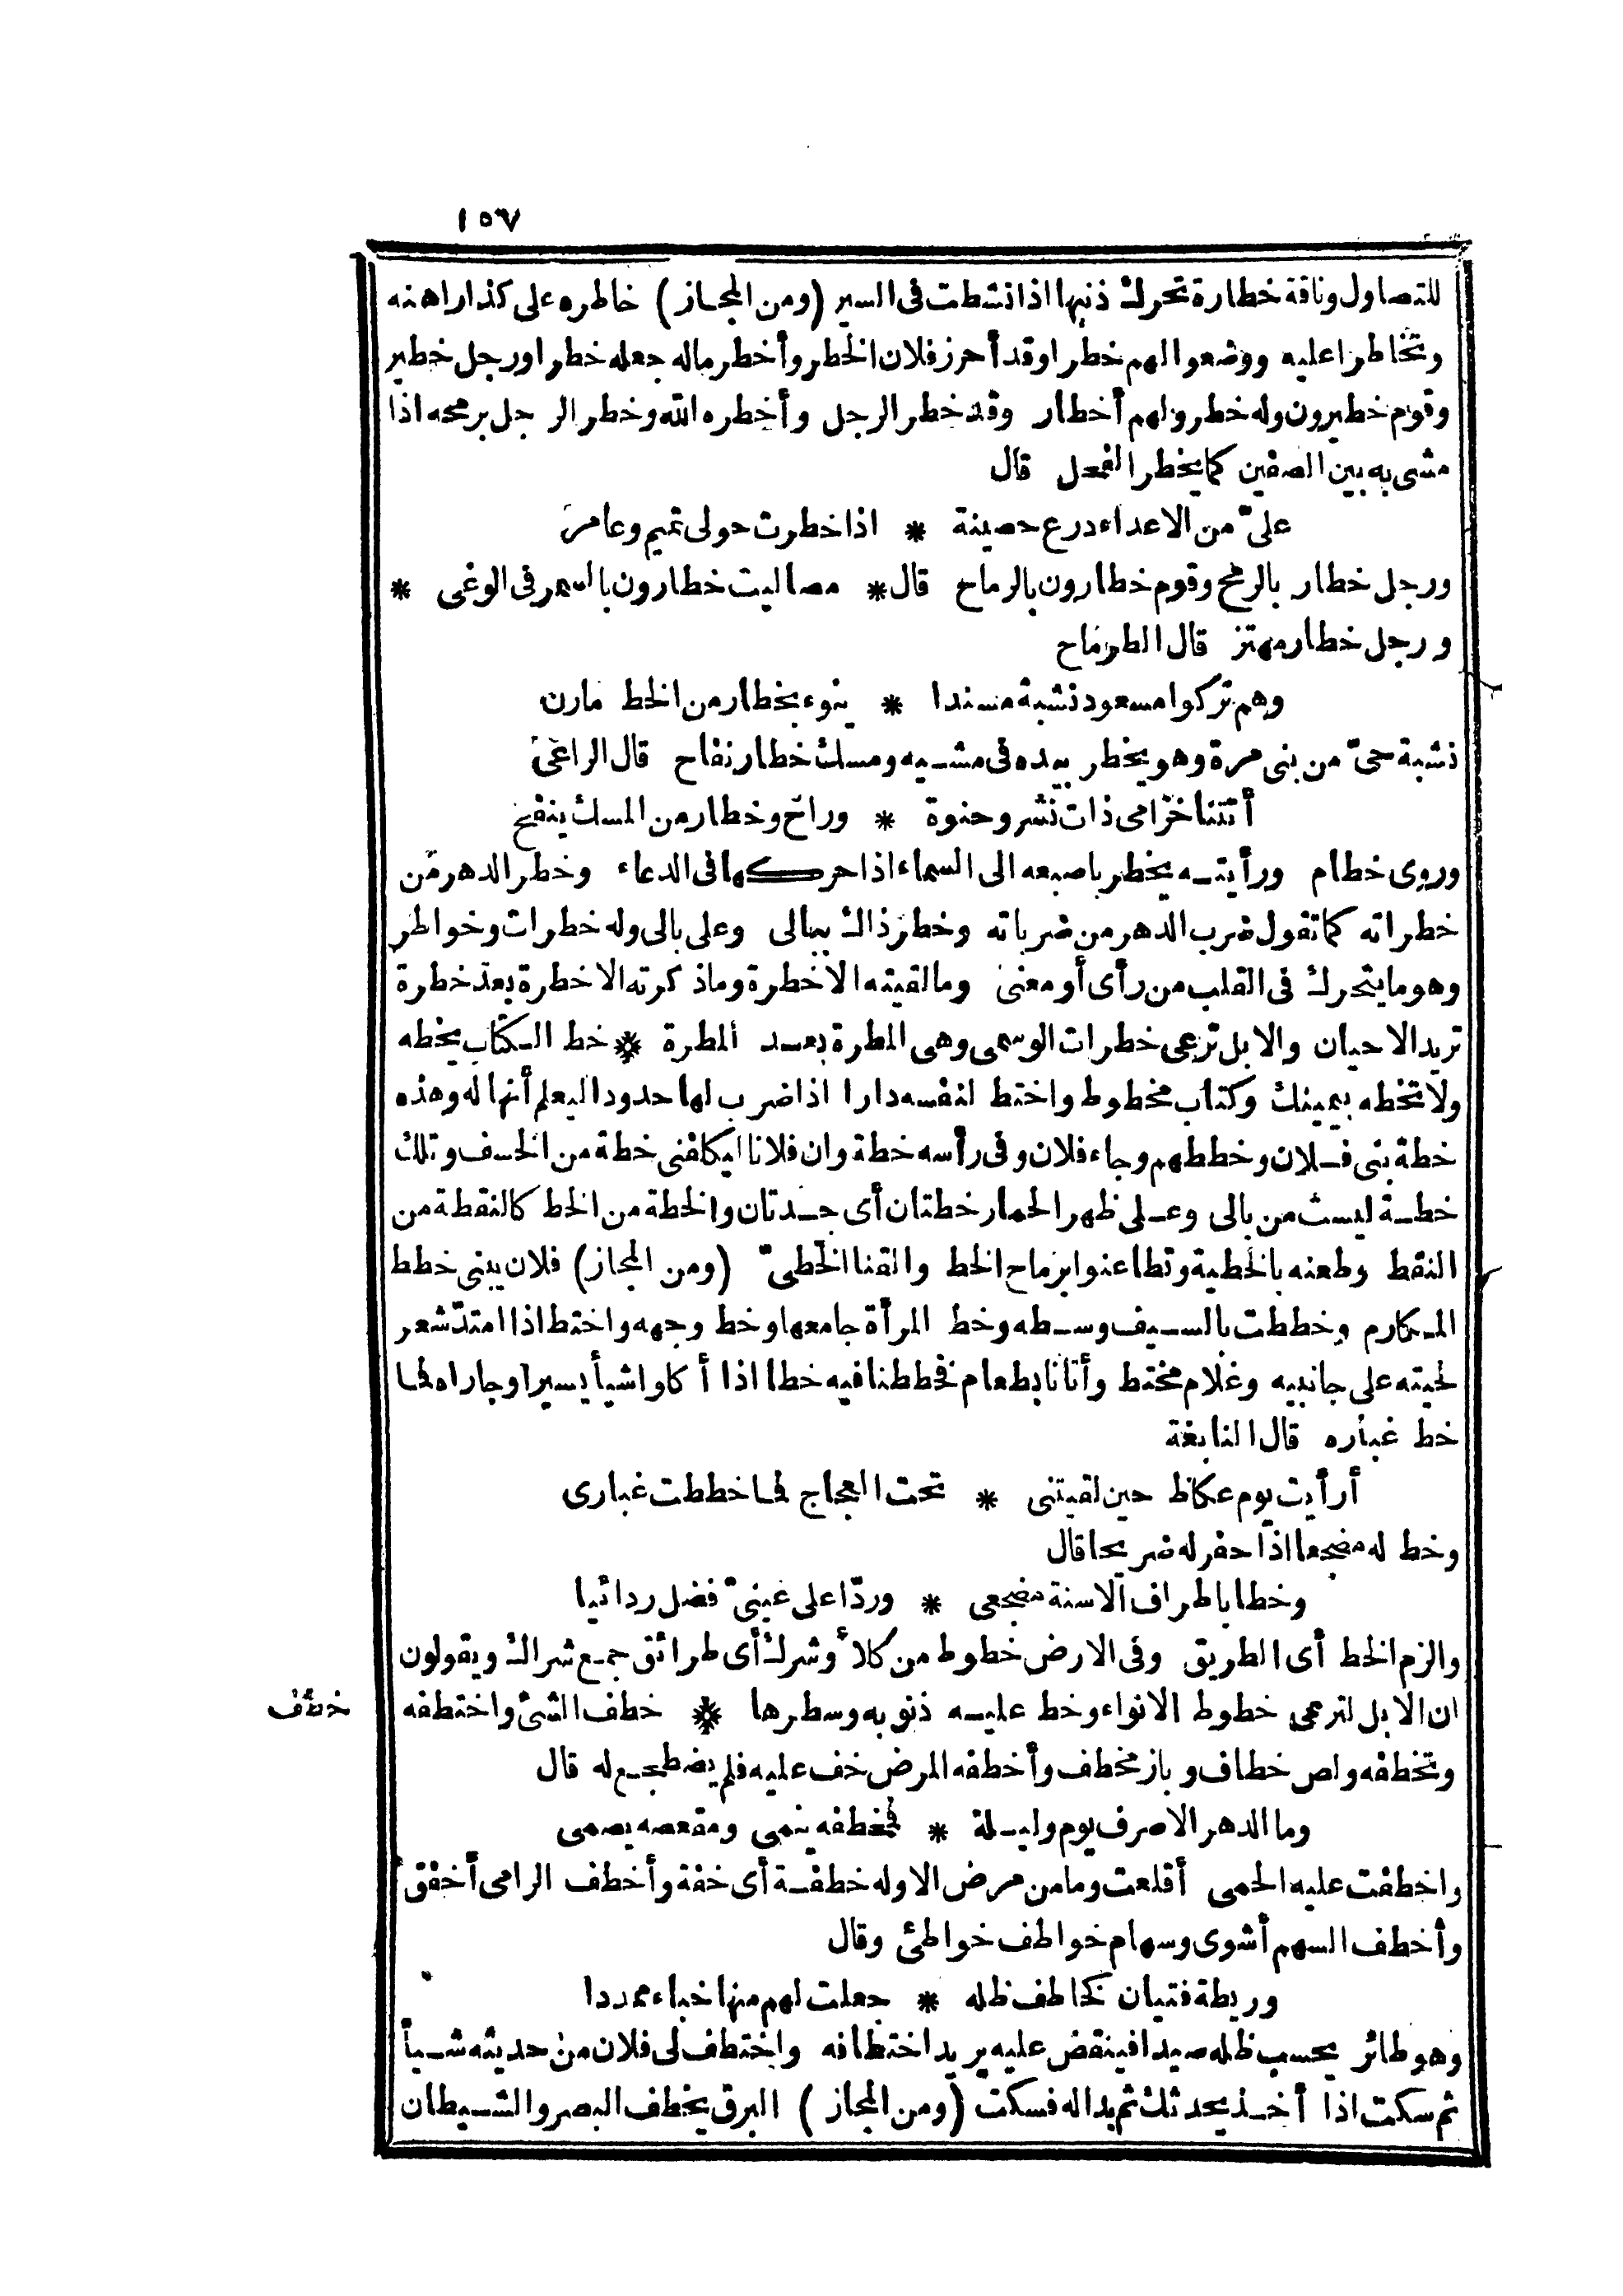 ١٥٧
للتصاول وناقة خطارة تحرك ذنبها اذا نشطت فى السير (ومن المجاز) خاطره على كذا راهنه
وتخاطرا عليه ووضعوا لهم خطرا وقد أحرز فلان الخطر وأخطر ماله جعله خطرا ورجل خطير
وقوم خطيرون وله خطر ولهم أخطار وقد خطر الرجل وأخطره الله وخطر الرجل برمحه اذا
مشى به بين الصفين كما يخطر الفحل قال
علىّ من الاعداء درع حصينة * اذا خطرت حولى تميم وعامر
ورجل خطار بالرمح وقوم خطارون بالرماح قال * مصاليت خطارون بالسمر فى الوغى *
ورجل خطار مهتز قال الطرماح
وهم تركوا مسعود نشبة مسندا * ينوء بخطار من الخط مارن
نشبة حىّ من بنى مرة وهو يخطر بيده فى مشيه ومسك خطار نفاح قال الراعى
أتتنا خزامى ذات نشر وحنوة * وراح وخطار من المسك ينفح
وروى خطام ورأيته يخطر باصبعه الى السماء اذا حركها فى الدعاء وخطر الدهر من
خطراته كما تقول ضرب الدهر من ضرباته وخطر ذاك ببالى وعلى بالى وله خطرات وخواطر
وهو ما يتحرك فى القلب من رأى أو معنى وما لقيته الا خطرة وما ذكرته الا خطرة بعد خطرة
تريد الاحيان والابل ترعى خطرات الوسمى وهى المطرة بعد المطرة * خط الكتاب يخطه
ولا تخطه بيمينك وكتاب مخطوط واختط لنفسه دارا اذا ضرب لها حدودا ليعلم أنها له وهذه
خطة بنى فلان وخططهم وجاء فلان وفى رأسه خطة وان فلانا ليكلفنى خطة من الخسف وتلك
خطة ليست من بالى وعلى ظهر الحمار خطتان أى جدتان والخطة من الخط كالنقطة من
النقط وطعنه بالخطية وتطاعنوا برماح الخط والقنا الخطىّ (ومن المجاز) فلان يبنى خطط
المكارم وخططت بالسيف وسطه وخط المرأة جامعها وخط وجهه واختط اذا امتدّ شعر
لحيته على جانبيه وغلام مختط وأتانا بطعام فخططنا فيه خطا اذا أكلوا شيأ يسيرا وجاراه فما
خط غباره قال النابغة
أرأيت يوم عكاظ حين لقيتنى * تحت العجاج فما خططت غبارى
وخط له مضجعا اذا حفر له ضريحا قال
وخطا باطراف الاسنة مضجعى * وردّا على عينىّ فضل ردائيا
والزم الخط أى الطريق وفى الارض خطوط من كلأ وشرك أى طرائق جمع شراك ويقولون
ان الابل لترعى خطوط الانواء وخط عليه ذنوبه وسطرها * خطف الشئ واختطفه
خطف
وتخطفه ولص خطاف وباز مخطف وأخطفه المرض خف عليه فلم يضطجع له قال
وما الدهر الا صرف يوم وليلة * فمخطفه ينمى ومقعصه يصمى
واخطفت عليه الحمى أقلعت وما من مرض الا وله خطفة أى خفة وأخطف الرامى أخفق
وأخطف السهم أشوى وسهام خواطف خواطئ وقال
وريطة فتيان كخاطف ظله * جعلت لهم منها خباء ممددا
وهو طائر يحسب ظله صيدا فينقض عليه يريد اختطافه واختطف لى فلان من حديثه شيأ
ثم سكت اذا أخذ يحدثك ثم بدا له فسكت (ومن المجاز) البرق يخطف البصر والشيطان